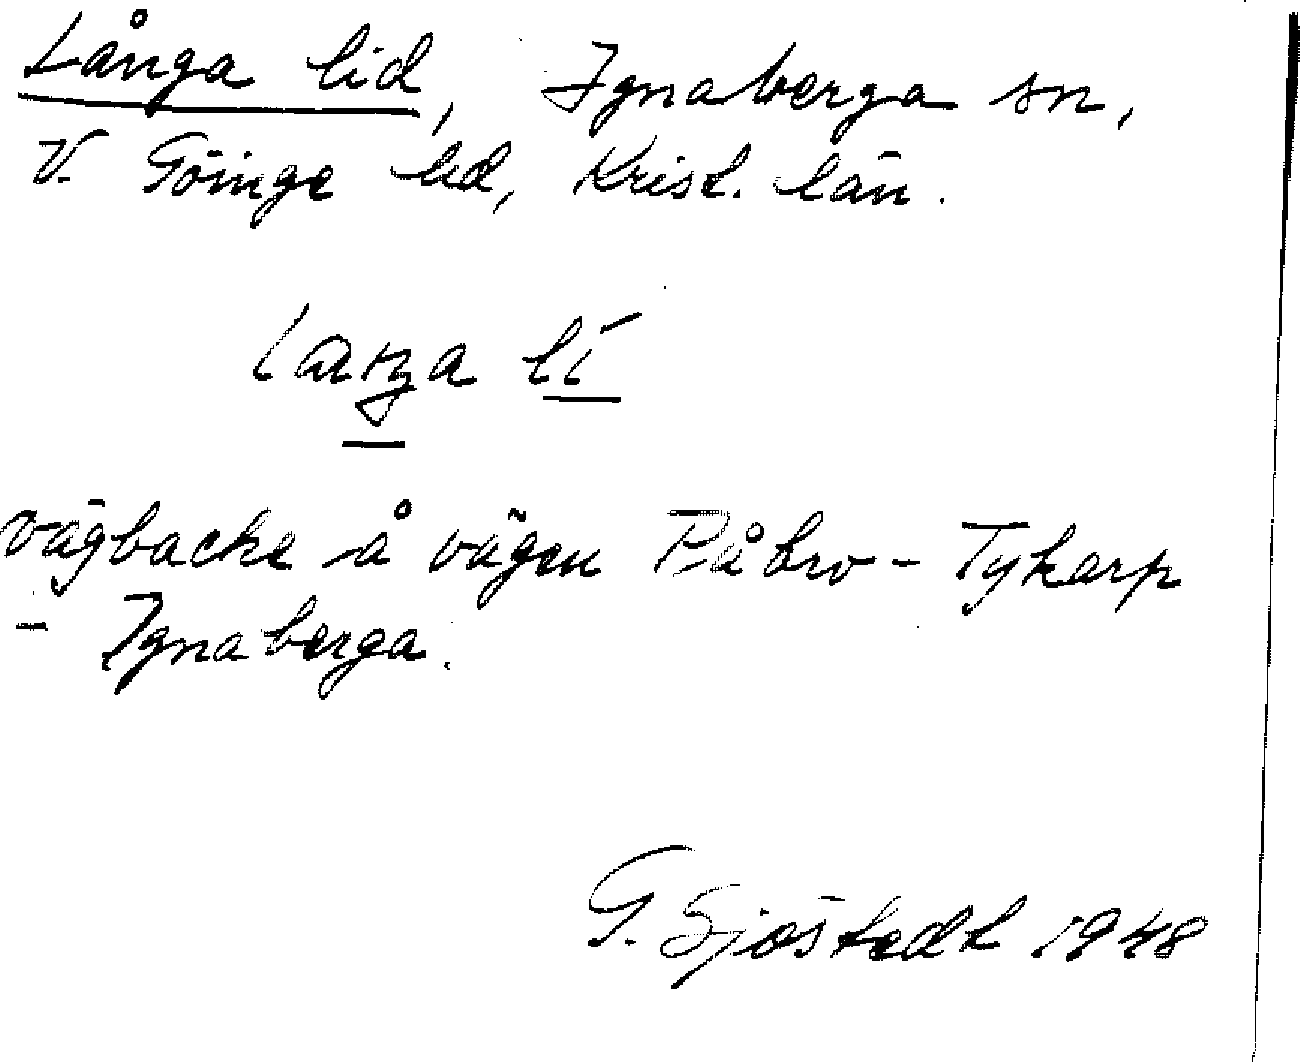 Långa lid, Ignaberga sn,
V. Göinge hd, Krist. län.
lí
vägbacke å vägen Påbro - Tykarp
- Ignaberga.
G. Sjöstedt 1948